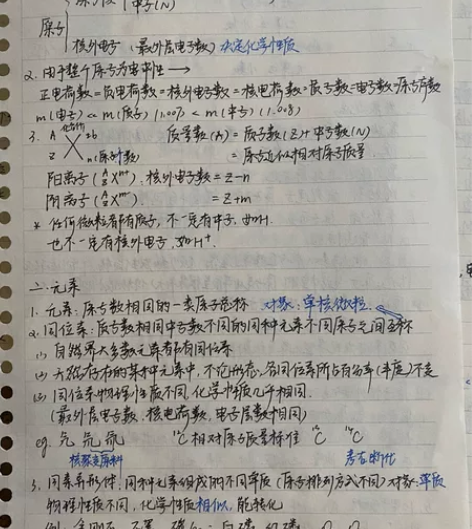 中子(N)
原子
核外电子 (最外层电子数) 决定化学性质
2. 由于整个原子为电中性 →
正电荷数=负电荷数=核外电子数=核电荷数=质子数=电子数=原子序数
m(电子) << m(质子) (1.007) < m(中子) (1.008)
3. A 化合价 ±b 质量数(A)=质子数(Z)+中子数(N)
X
Z n(原子个数) =原子近似相对原子质量
阳离子 (A Z X n+) 核外电子数=Z-n
阴离子 (A Z X m-) =Z+m
* 任何微粒都有质子,不一定有中子,如H.
也不一定有核外电子,如H+.
二.元素
1. 元素:质子数相同的一类原子总称 对象:单核微粒
2. 同位素:质子数相同中子数不同的同种元素不同原子之间互称
(1) 自然界大多数元素都有同位素
(2) 天然存在的某种元素中,不论游离,各同位素所占百分率(丰度)不变
(3) 同位素物理性质不同,化学性质几乎相同.
(最外层电子数,核电荷数,电子层数相同)
eg. 氕 氘 氚 12C相对原子质量标准 13C 14C
核聚变原料 考古断代
3. 同素异形体:同种元素组成的不同单质(原子排列方式不同)对象:单质
物理性质不同,化学性质相似,能转化
例:金刚石、石墨